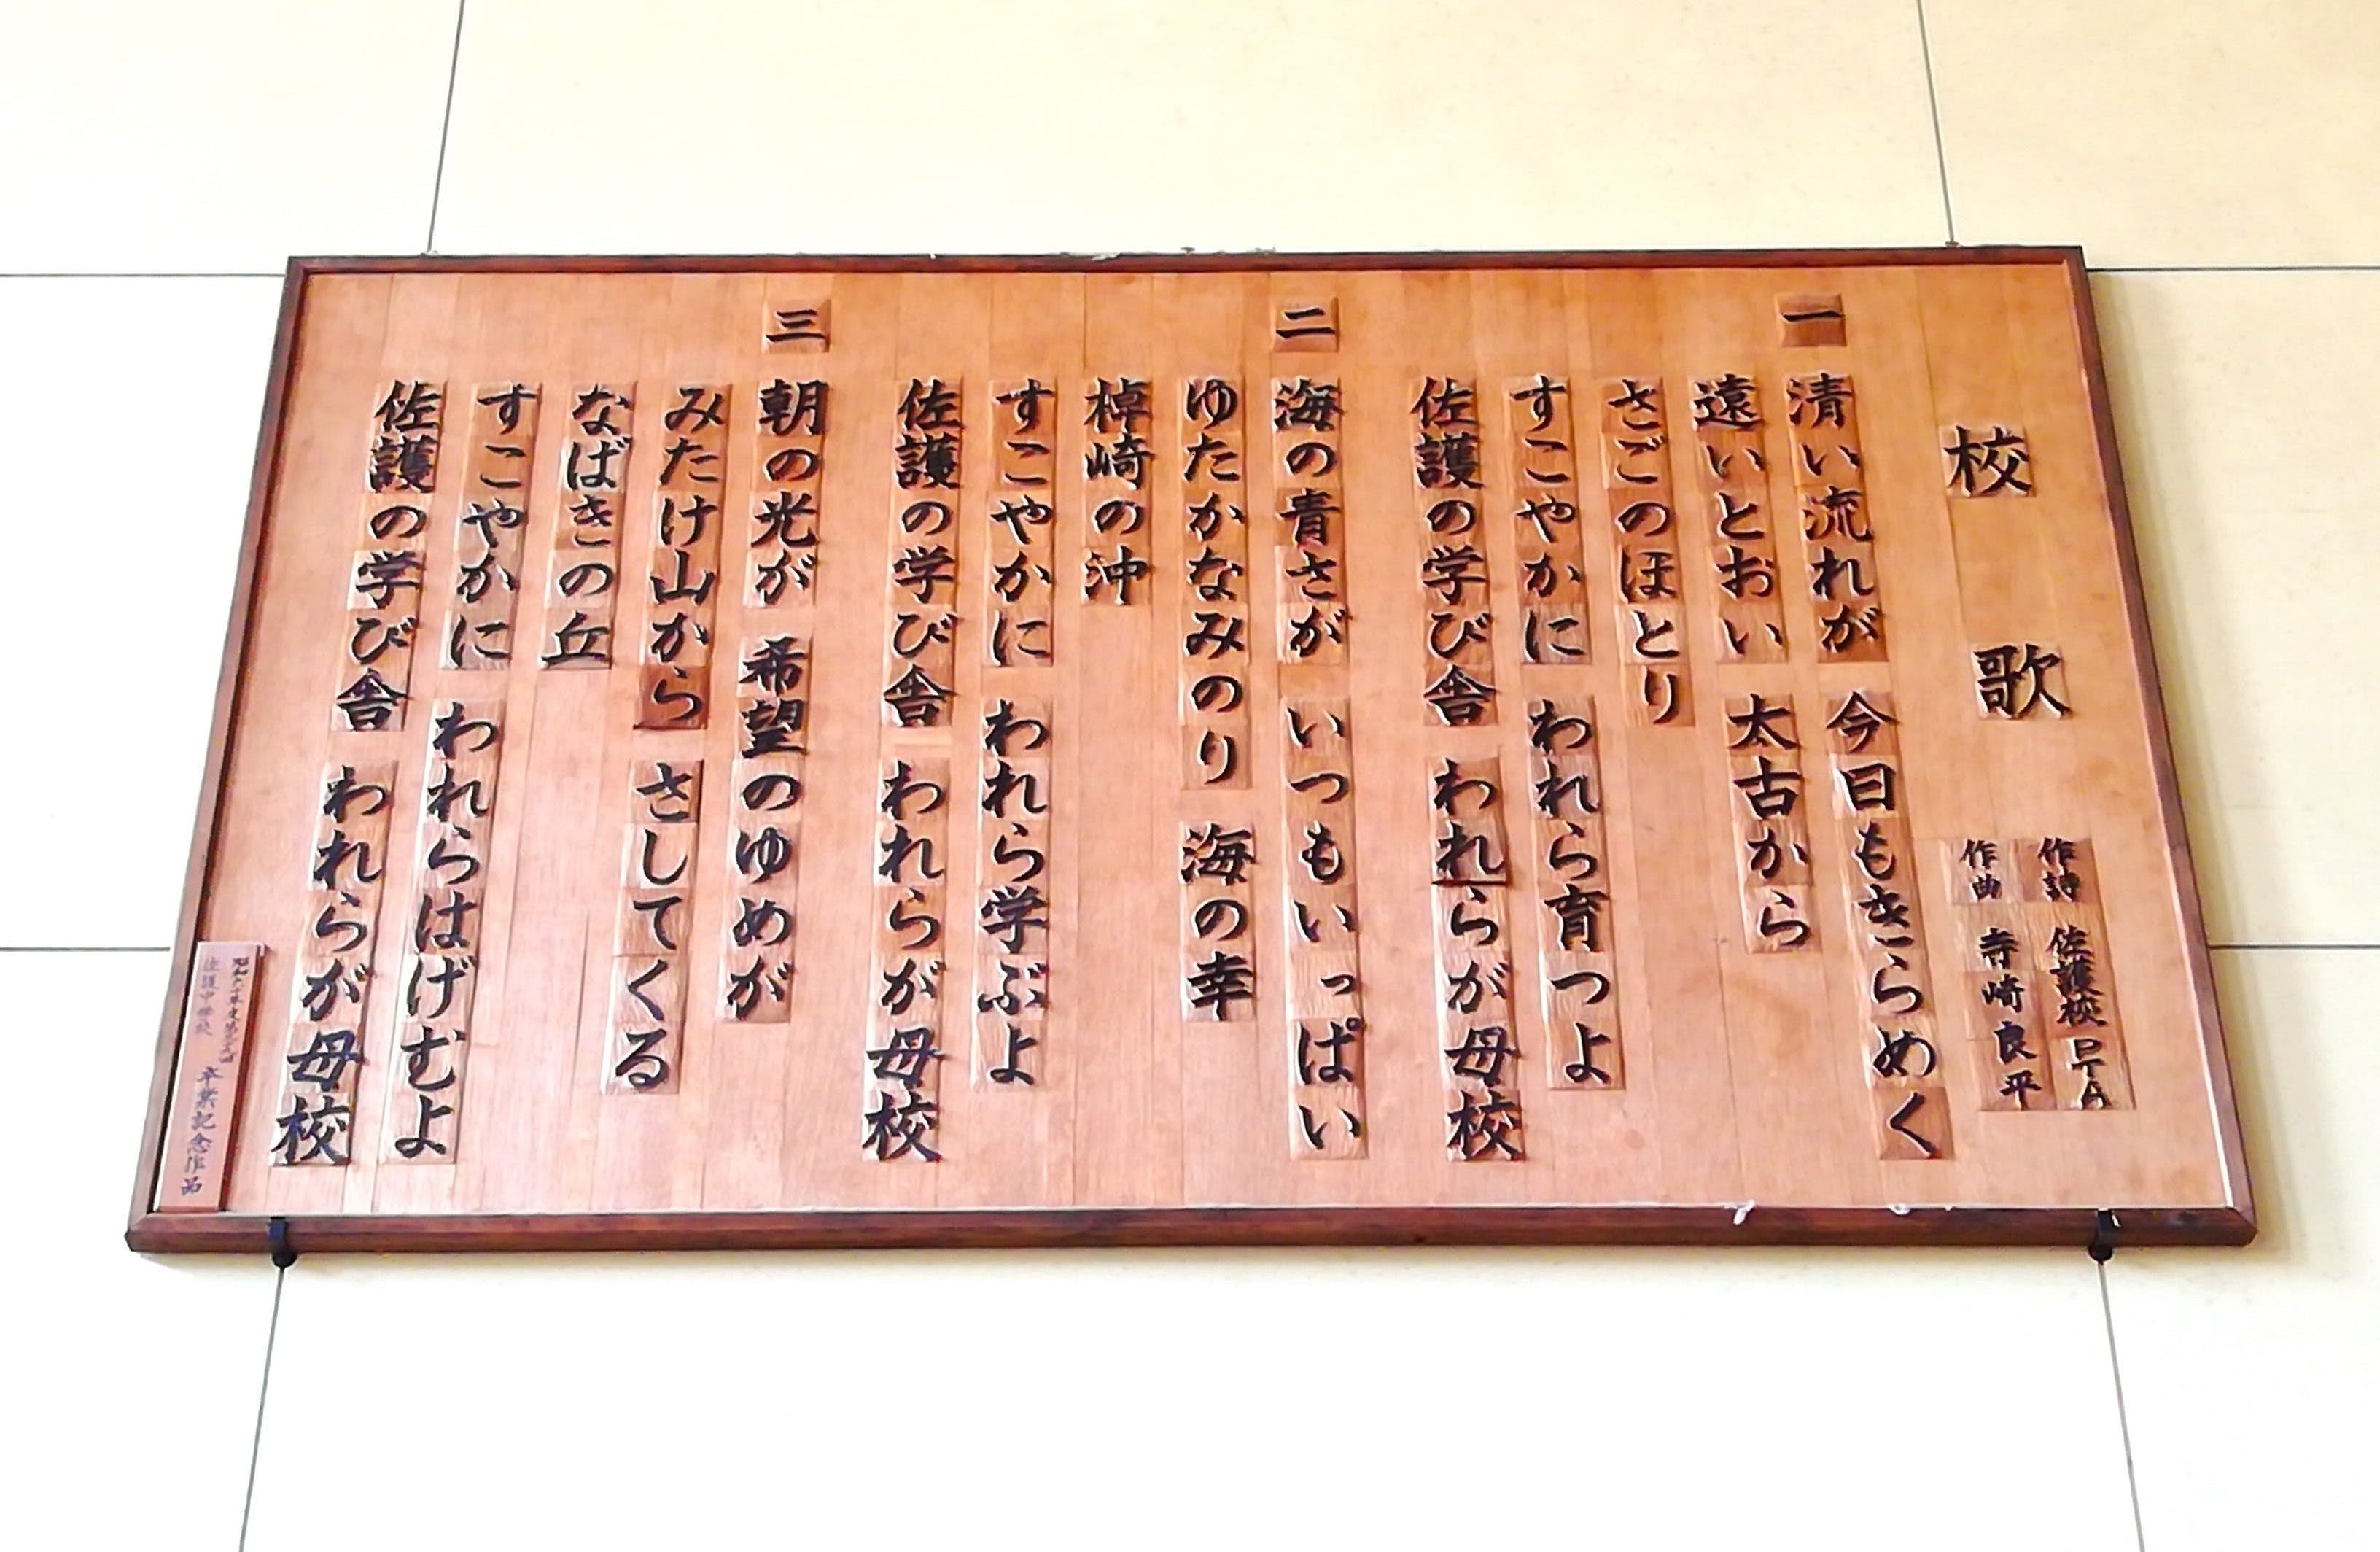 校歌
作詩 佐護校PTA
作曲 寺崎良平
一 清い流れが 今日もきらめく
遠いとおい 太古から
さごのほとり
すこやかに われら育つよ
佐護の学び舎 われらが母校
二 海の青さが いつもいっぱい
ゆたかなみのり 海の幸
棹崎の沖
すこやかに われら学ぶよ
佐護の学び舎 われらが母校
三 朝の光が 希望のゆめが
みたけ山から さしてくる
なばきの丘
すこやかに われらはげむよ
佐護の学び舎 われらが母校
佐護中学校 卒業記念作品